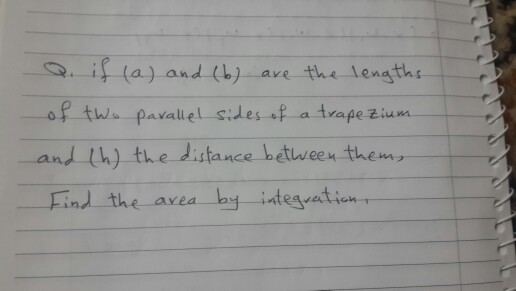 Q. if (a) and (b) are the lengths
of two parallel sides of a trapezium
and (h) the distance between them,
Find the area by integration.